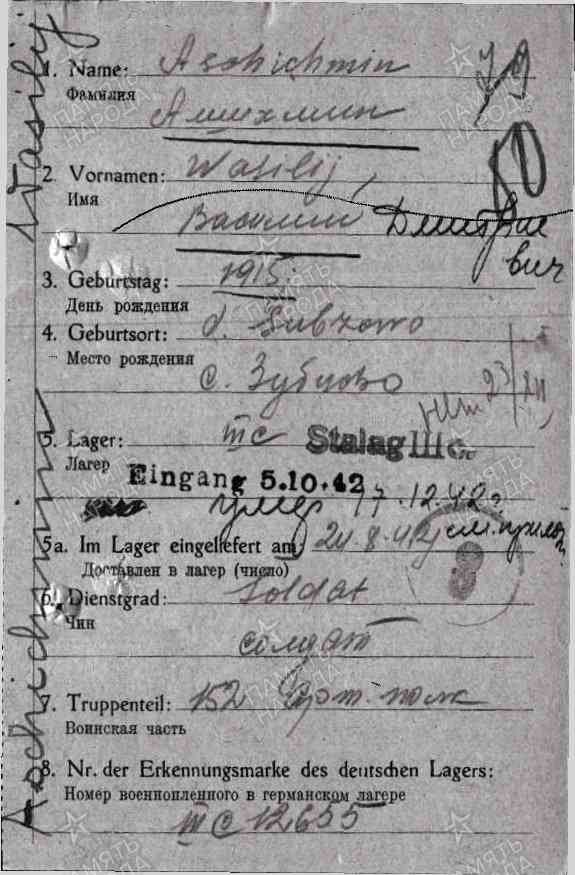 1. Name: Aschichmin
Фамилия
Ашихмин
79
2. Vornamen: Wasilij,
Имя
Василий Дмитрие
вич
3. Geburtstag: 1915
День рождения
4. Geburtsort: d. Subzowo
Место рождения
с. Зубцово
5. Lager: III C Stalag III c.
Лагер
Eingang 5.10.42
умер 17.12.42г.
5a. Im Lager eingeliefert am: 24.8.42
Доставлен в лагер (число)
6. Dienstgrad: Soldat
Чин
солдат
7. Truppenteil: 152 Арт. полк
Воинская часть
8. Nr. der Erkennungsmarke des deutschen Lagers:
Номер военнопленного в германском лагере
III C 12655
Aschichmin Wasilij
ПАМЯТЬ НАРОДА